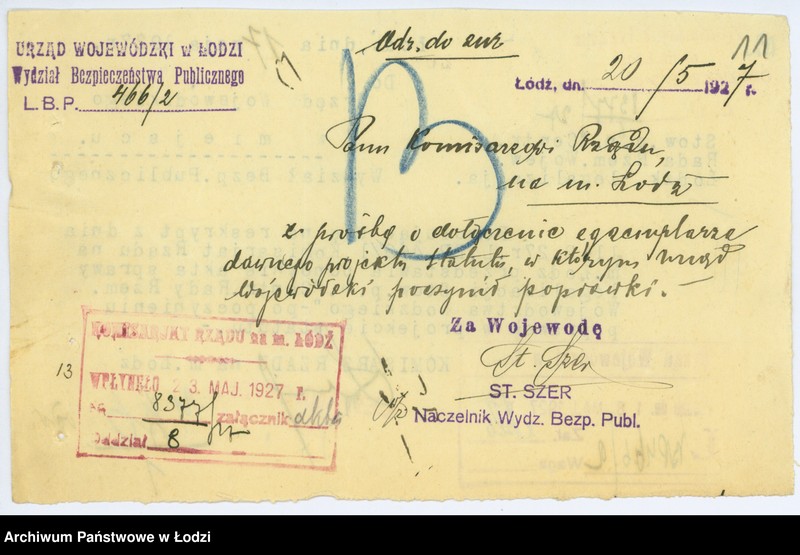 11
URZĄD WOJEWÓDZKI w ŁODZI
Wydział Bezpieczeństwa Publicznego
L.B.P. 466/2
Odr. do
Łódź, dn. 20/5 1927 r.
B
Panu Komisarzowi Rządu,
na m. Łódź
z prośbą o dołączenie egzemplarza
dawnego projektu statutu, w którym Urząd
Wojewódzki poczynił poprawki. —
Za Wojewodę
St. Szer
ST. SZER
Naczelnik Wydz. Bezp. Publ.
13
KOMISARJAT RZĄDU na m. ŁÓDŹ
WPŁYNĘŁO 23. MAJ. 1927 r.
8377/
załącznik
Oddział 8
Archiwum Państwowe w Łodzi